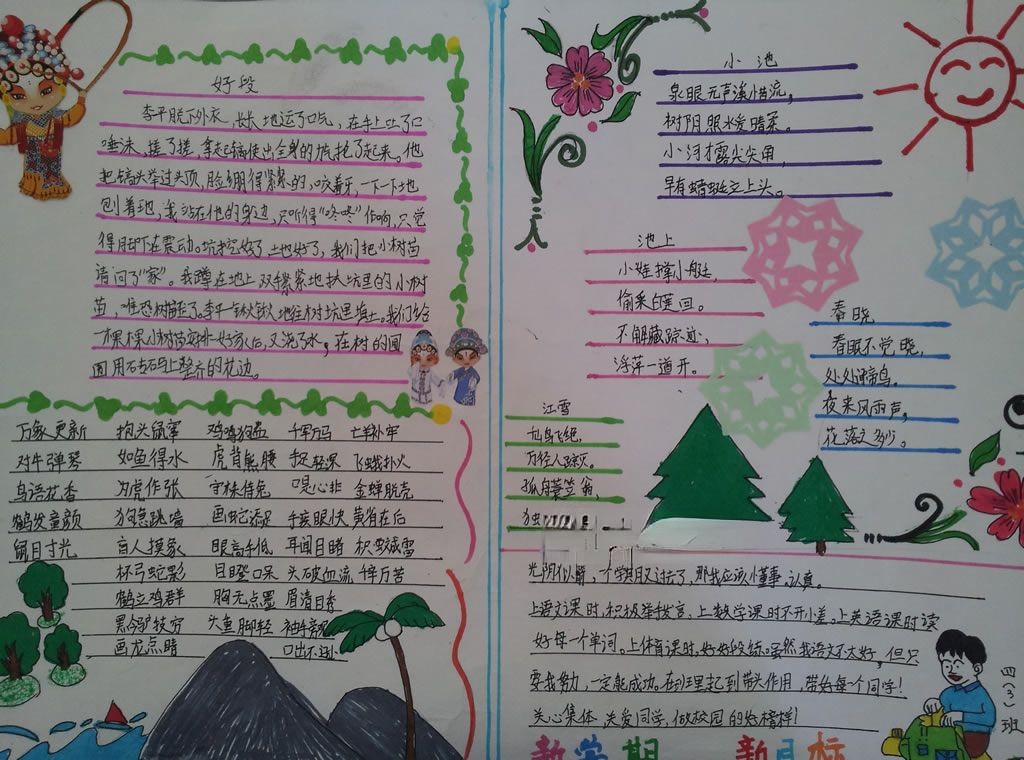 好段
李平脱下外衣，长长地运了口气，在手上吐了口
唾沫，搓了搓，拿起镐使出全身的力气抡了起来。他
把镐头举过头顶，脸绷得紧紧的，咬着牙，一下一下地
刨着地，我站在他的身边，只听得“咚咚”作响，只觉
得脚下在震动。坑挖好了，土地好了，我们把小树苗
请回了“家”。我蹲在地上双手紧紧地扶坑里的小树
苗，唯恐树苗歪了。李平一锹一锹地往树坑里填土。我们给
一棵棵小树苗安排好家后，又浇了水，在树的周
围用石去码上整齐的花边。
万象更新 抱头鼠窜 鸡鸣狗盗 千军万马 亡羊补牢
对牛弹琴 如鱼得水 虎背熊腰 手足轻深 飞蛾扑火
鸟语花香 为虎作张 守株待兔 口是心非 金蝉脱壳
鹤发童颜 狗急跳墙 画蛇添足 手疾眼快 黄雀在后
鼠目寸光 盲人摸象 眼高手低 耳闻目睹 积雪成雷
杯弓蛇影 目瞪口呆 头破血流 千辛万苦
鹤立鸡群 胸无点墨 眉清目秀
黑今驴技穷 头重脚轻 袖手旁观
画龙点睛 口出不逊
小池
泉眼无声溪惜流，
树阴照水爱晴柔。
小河才露尖尖角，
早有蜻蜓立上头。
池上
小娃撑小艇，
偷采白莲回。
不解藏踪迹，
浮萍一道开。
春晓
春眠不觉晓，
处处闻啼鸟。
夜来风雨声，
花落知多少。
江雪
千山鸟飞绝，
万径人踪灭。
孤舟蓑笠翁，
独
光阴似箭，一个学期又过去了，那我应该懂事、认真。
上语文课时，积极举手发言、上数学课时不开小差。上英语课时读
好每一个单词。上体育课时，好好锻练。虽然我语文不太好，但只
要我努力，一定能成功。在班里起到带头作用，带好每个同学！
关心集体、关爱同学，做校园的好榜样！
新学期 新目标
四（3）班